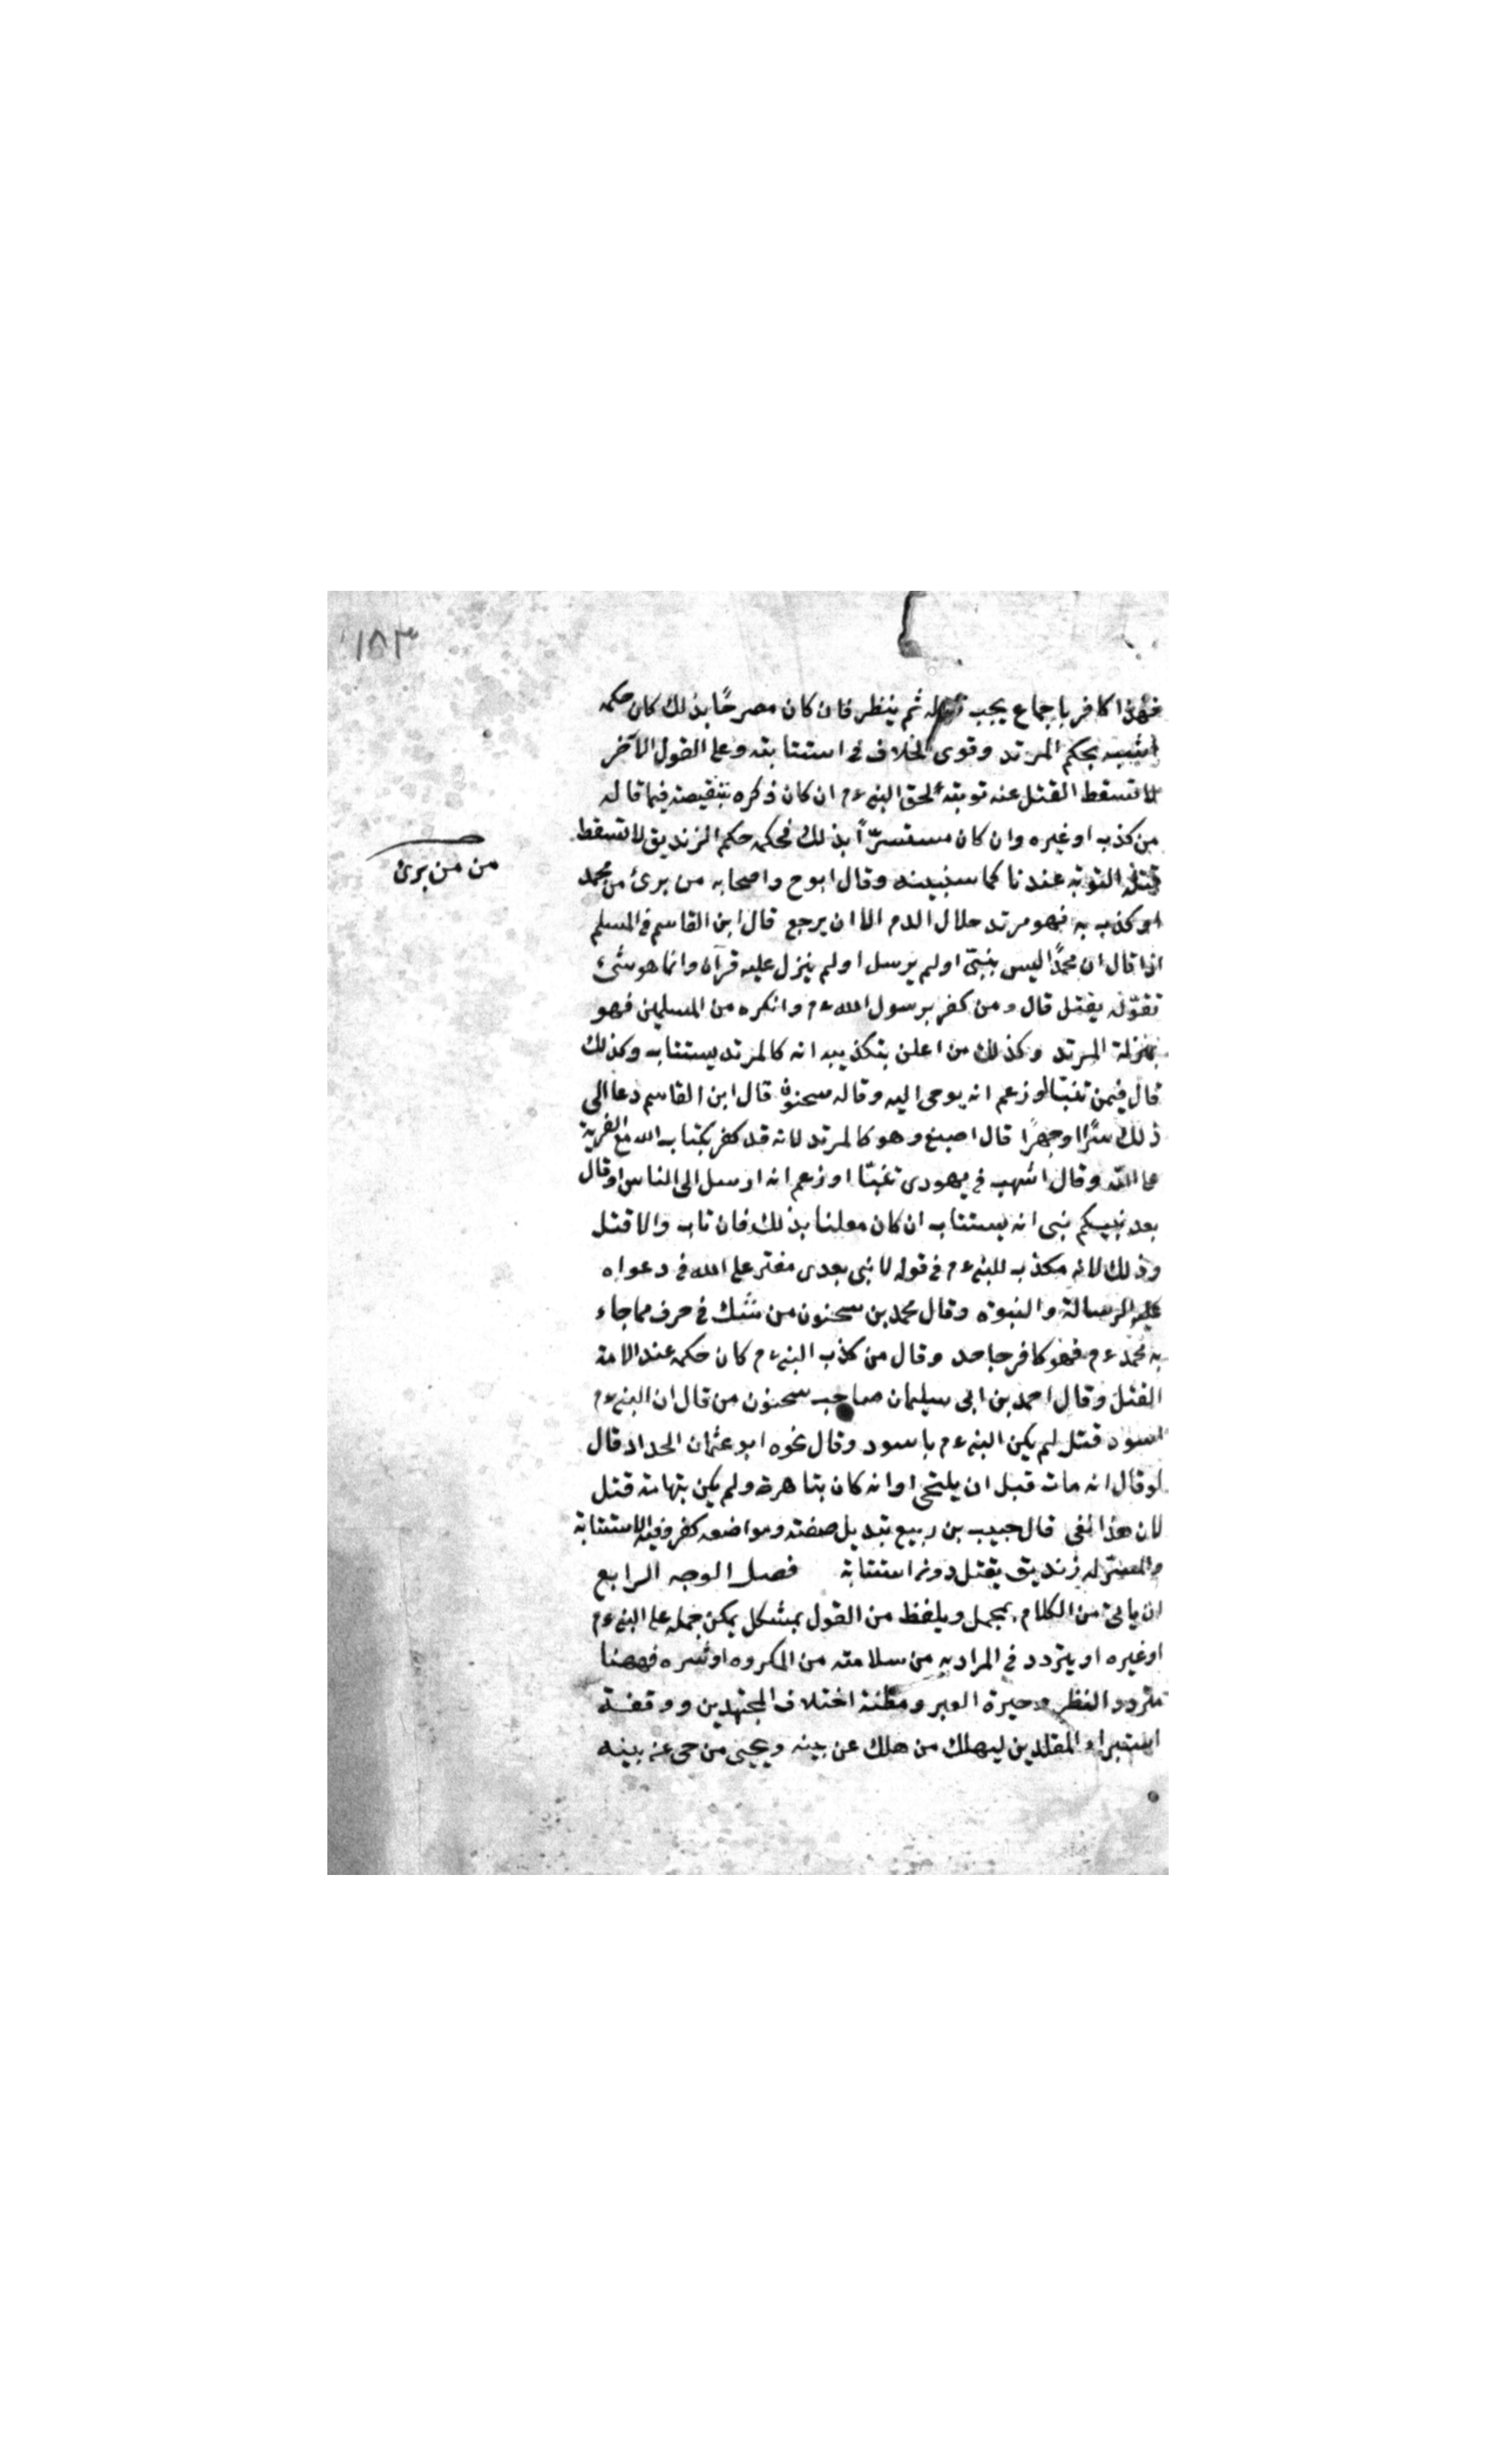 ١٥٣
فهذا كافر باجماع يجب قتله ثم ينظر فان كان مصرحًا بذلك كان حكمه
اشبه بحكم المرتد وقوى الخلاف في استتابته وعلى القول الآخر
لا تسقط القتل عنه توبته لحق النبي ءم ان كان ذكره بنقيصته فيما قاله
من كذب او غيره وان كان مستسرّاً بذلك فحكمه حكم الزنديق لا تسقط
قتله التوبة عندنا كما سنبينه وقال ابوح واصحابه من برئ من محمد
من من برئ
او كذب به فهو مرتد حلال الدم الا ان يرجع قال ابن القاسم في المسلم
اذا قال ان محمدًا ليس بنبيّ او لم يرسل او لم ينزل عليه قرآن وانما هو شئ
تقوّله يقتل قال ومن كفر برسول الله ءم وانكره من المسلمين فهو
بمنزلة المرتد وكذلك من اعلن بتكذيبه انه كالمرتد يستتاب وكذلك
قال فيمن تنبّا وزعم انه يوحى اليه وقاله سحنون قال ابن القاسم دعا الى
ذلك سرًا او جهرًا قال اصبغ وهو كالمرتد لانه قد كفر بكتاب الله مع الفرية
على الله وقال اشهب في يهودى تنبّا او زعم انه ارسل الى الناس او قال
بعد نبيكم نبى انه يستتاب ان كان معلنا بذلك فان تاب والا قتل
وذلك لانه مكذب للنبي ءم في قوله لا نبى بعدى مفتر على الله في دعواه
عليه الرسالة والنبوة وقال محمد بن سحنون من شك في حرف مما جاء
به محمد ءم فهو كافر جاحد وقال من كذب النبي ءم كان حكمه عند الامة
القتل وقال احمد بن ابى سليمان صاحب سحنون من قال ان النبي ءم
اسود قتل لم يكن النبي ءم باسود وقال نحوه ابو عثمان الحداد قال
لو قال انه مات قبل ان يلتحى او انه كان بتاهرت ولم يكن بتهامة قتل
لان هذا نفى قال حبيب بن ربيع تبديل صفته ومواضعه كفر وفيه الاستتابة
والمستر له زنديق يقتل دون استتابة فصل الوجه الرابع
ان ياتى من الكلام بمجمل ويلفظ من القول بمشكل يمكن حمله على النبي ءم
او غيره او يتردد في المراد به من سلامته من المكروه او شره فههنا
متردد النظر وحيرة العبر ومظنة اختلاف المجتهدين ووقفة
استبراء المقلدين ليهلك من هلك عن بينه ويحيى من حى عن بينه